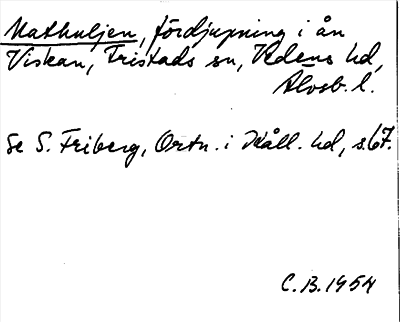 Nathuljen, fördjupning i ån
Viskan, Fristads sn, Vedens hd,
Älvsb. l.
Se S. Friberg, Ortn. i Kåll. hd, s. 67.
C.B. 1954